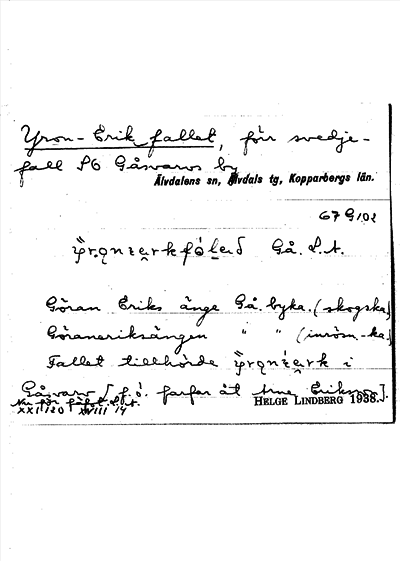 Yron-Erik fallet, förr svedje-
fall SO Gåsvarvs by
Älvdalens sn, Älvdals tg, Kopparbergs län.
67 G102
Gå. L.t.
Göran Eriks änge Gå. byka. (skogska)
Göraneriksängen " " (inröm-ka.)
Fallet tillhörde i
Gåsvarv [f.ö. farfar åt Arne Eriksson].
Nu för fäfot. L.t.
XXI 120 XVIII 14
HELGE LINDBERG 1938.